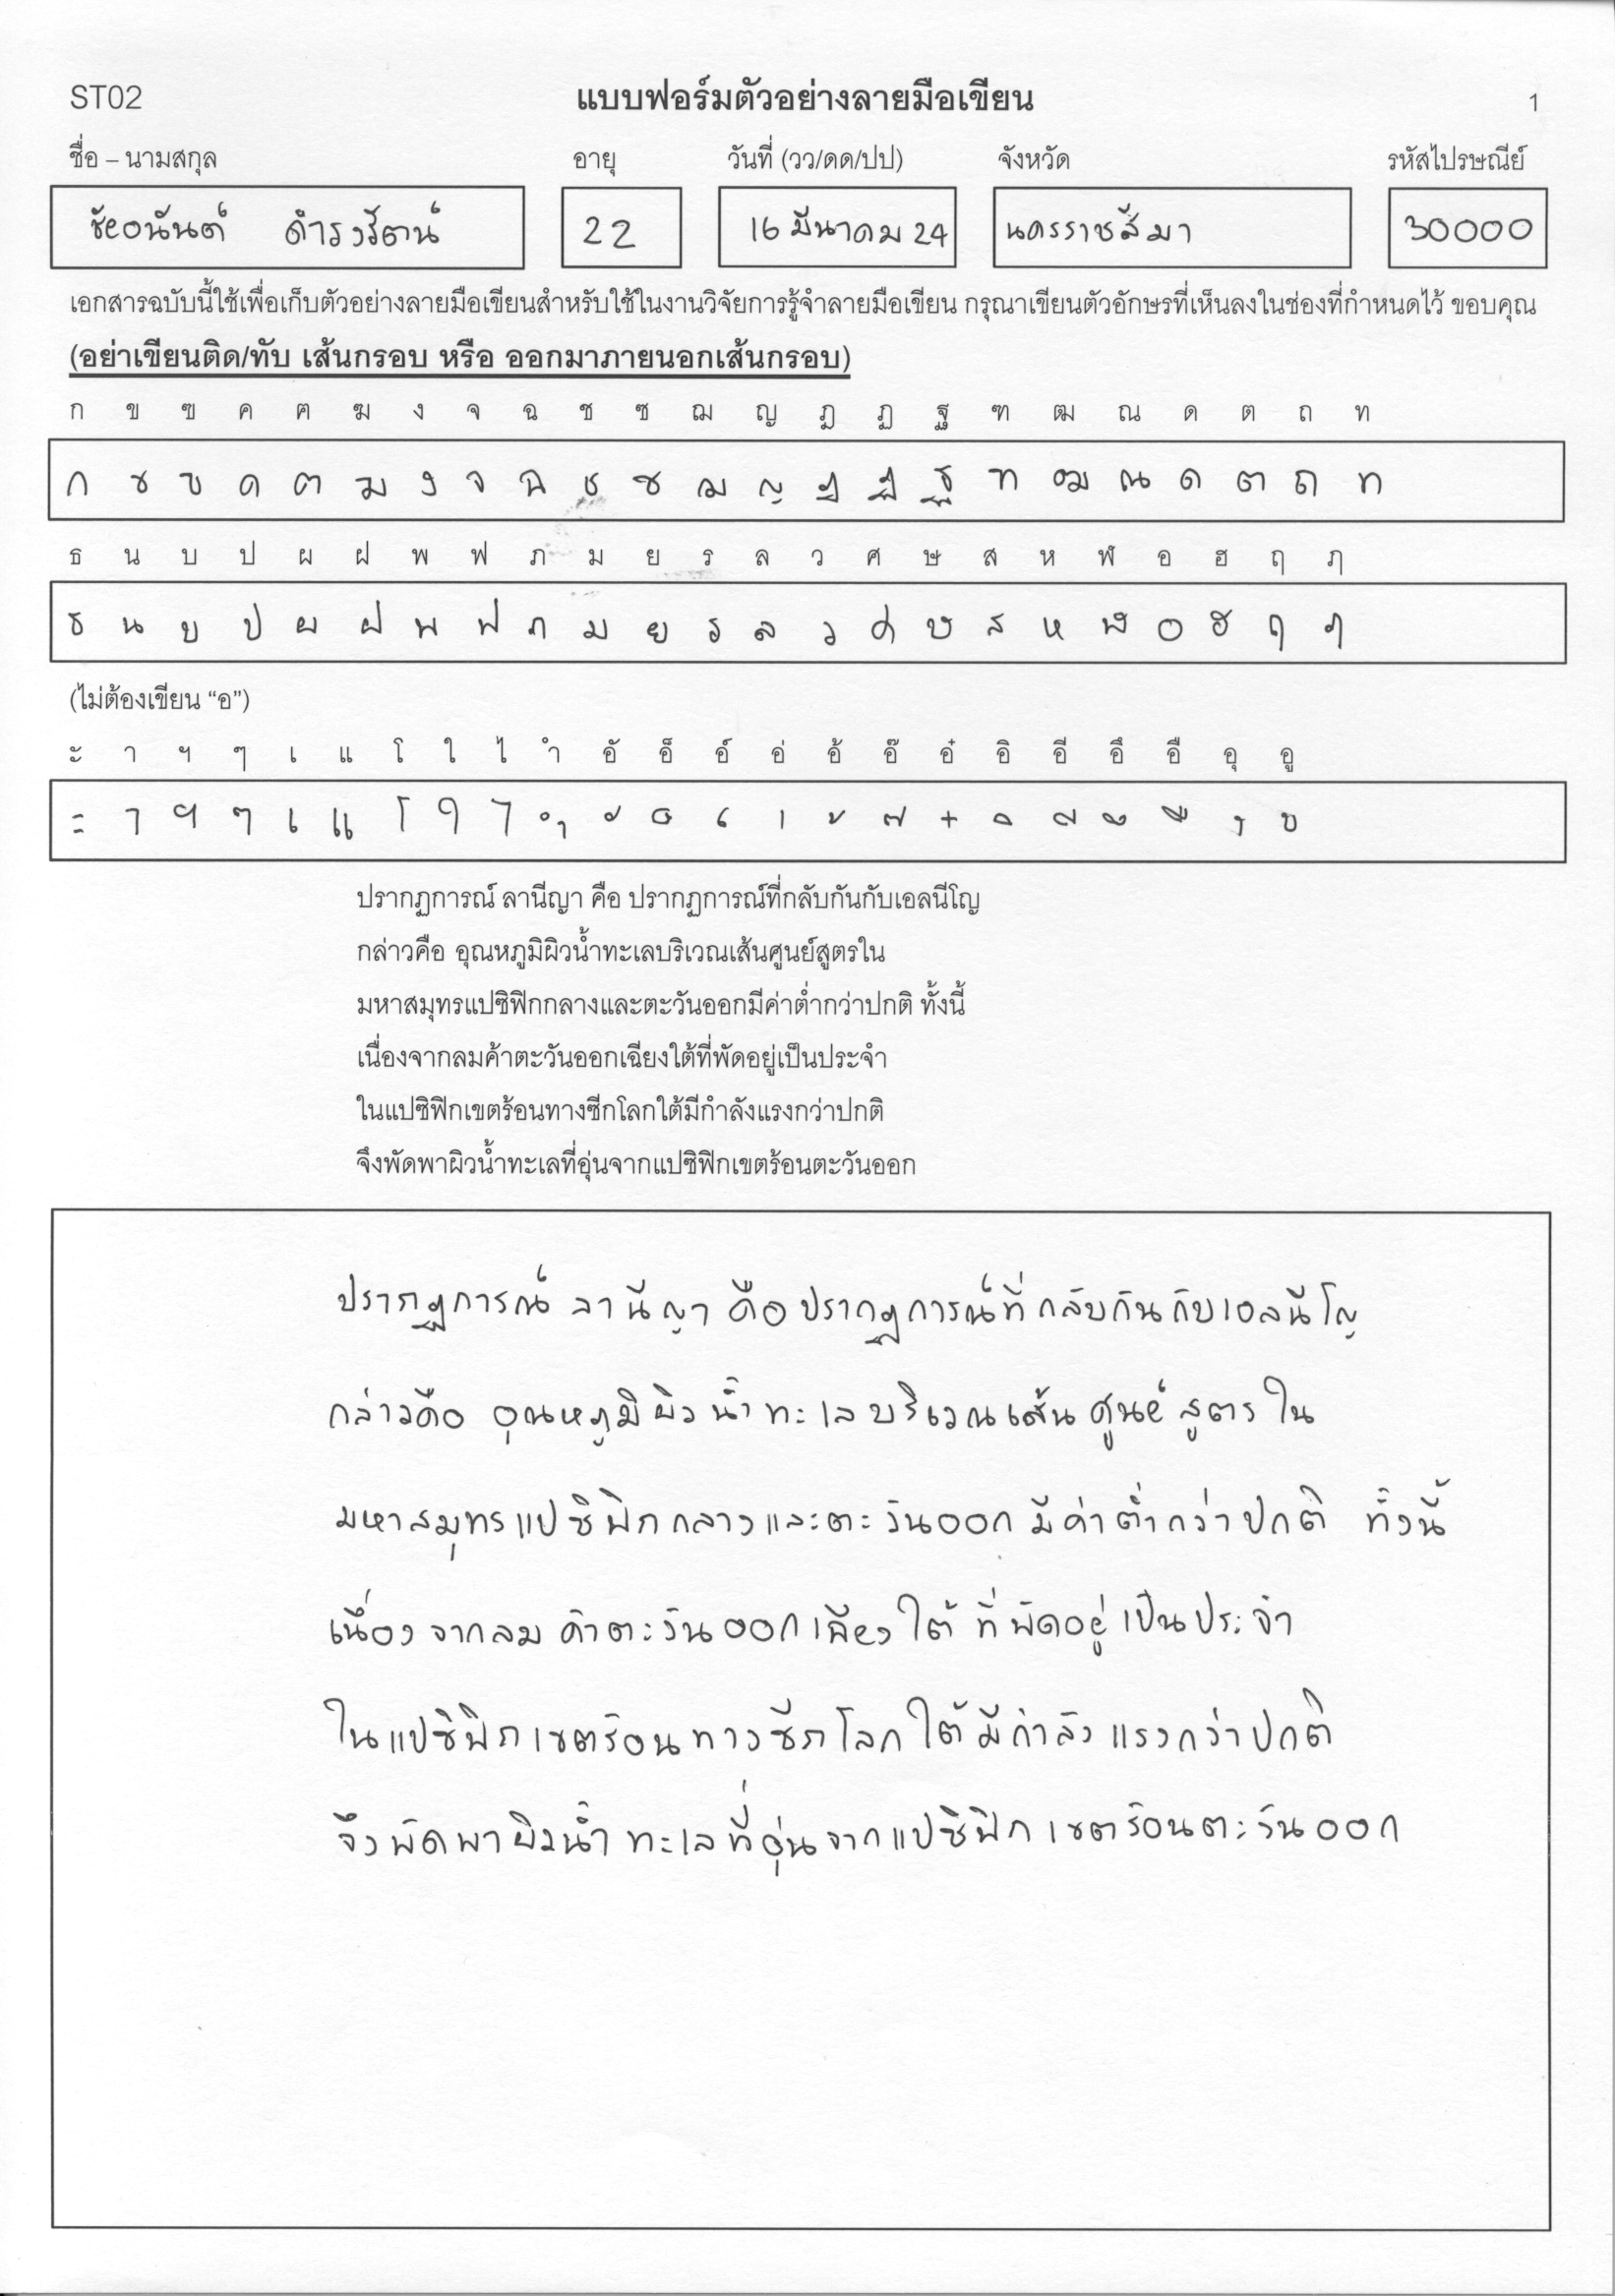 ST02 แบบฟอร์มตัวอย่างลายมือเขียน 1
ชื่อ – นามสกุล อายุ วันที่ (วว/ดด/ปป) จังหวัด รหัสไปรษณีย์
ชัยอนันต์ ดำรงรัตน์ 22 16 มีนาคม 24 นครราชสีมา 30000
เอกสารฉบับนี้ใช้เพื่อเก็บตัวอย่างลายมือเขียนสำหรับใช้ในงานวิจัยการรู้จำลายมือเขียน กรุณาเขียนตัวอักษรที่เห็นลงในช่องที่กำหนดไว้ ขอบคุณ
(อย่าเขียนติด/ทับ เส้นกรอบ หรือ ออกมาภายนอกเส้นกรอบ)
ก ข ฃ ค ฅ ฆ ง จ ฉ ช ซ ฌ ญ ฎ ฏ ฐ ฑ ฒ ณ ด ต ถ ท
ก ข ฃ ค ฅ ฆ ง จ ฉ ช ซ ฌ ญ ฎ ฏ ฐ ฑ ฒ ณ ด ต ถ ท
ธ น บ ป ผ ฝ พ ฟ ภ ม ย ร ล ว ศ ษ ส ห ฬ อ ฮ ฤ ฦ
ธ น บ ป ผ ฝ พ ฟ ภ ม ย ร ล ว ศ ษ ส ห ฬ อ ฮ ฤ ฦ
(ไม่ต้องเขียน “อ”)
ะ า ฯ ๆ เ แ โ ใ ไ ำ อั อ็ อ์ อ่ อ้ อ๊ อ๋ อิ อี อึ อื อุ อู
ะ า ฯ ๆ เ แ โ ใ ไ ำ ั ็ ์ ่ ้ ๊ ๋ ิ ี ึ ื ุ ู
ปรากฏการณ์ ลานีญา คือ ปรากฏการณ์ที่กลับกันกับเอลนีโญ
กล่าวคือ อุณหภูมิผิวน้ำทะเลบริเวณเส้นศูนย์สูตรใน
มหาสมุทรแปซิฟิกกลางและตะวันออกมีค่าต่ำกว่าปกติ ทั้งนี้
เนื่องจากลมค้าตะวันออกเฉียงใต้ที่พัดอยู่เป็นประจำ
ในแปซิฟิกเขตร้อนทางซีกโลกใต้มีกำลังแรงกว่าปกติ
จึงพัดพาผิวน้ำทะเลที่อุ่นจากแปซิฟิกเขตร้อนตะวันออก
ปรากฏการณ์ ลานีญา คือ ปรากฏการณ์ที่กลับกันกับเอลนีโญ
กล่าวคือ อุณหภูมิผิวน้ำทะเลบริเวณเส้นศูนย์สูตรใน
มหาสมุทรแปซิฟิกกลางและตะวันออกมีค่าต่ำกว่าปกติ ทั้งนี้
เนื่องจากลมค้าตะวันออกเฉียงใต้ที่พัดอยู่เป็นประจำ
ในแปซิฟิกเขตร้อนทางซีกโลกใต้มีกำลังแรงกว่าปกติ
จึงพัดพาผิวน้ำทะเลที่อุ่นจากแปซิฟิกเขตร้อนตะวันออก